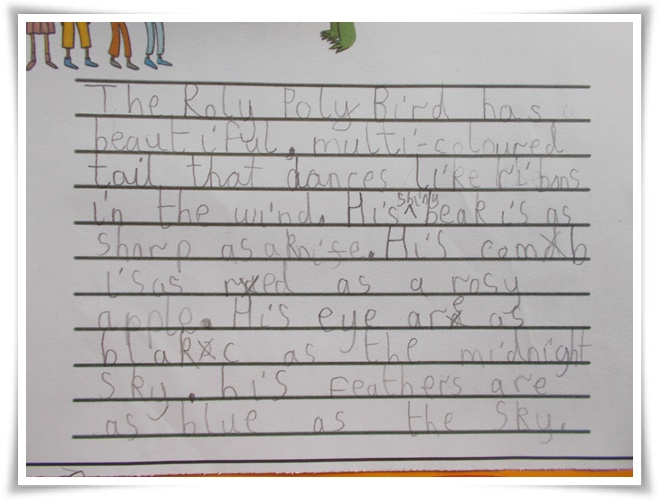 The Roly Poly Bird has a
beautiful, multi-coloured
tail that dances like ribons
in the wind. His shiny beak is as
sharp as a knife. His comb
is as red as a rosy
apple. His eye are as
blakc as the midnight
sky. his feathers are
as blue as the sky.